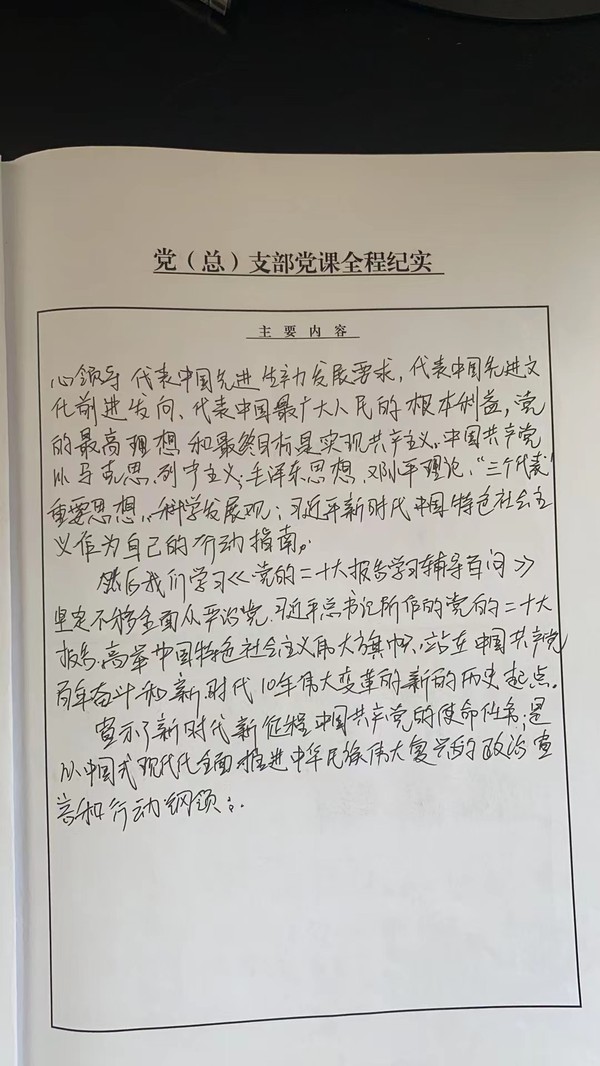 党（总）支部党课全程纪实
主要内容
心领导 代表中国先进生产力发展要求，代表中国先进文
化前进方向、代表中国最广大人民的根本利益，党
的最高理想和最终目标是实现共产主义。中国共产党
以马克思、列宁主义；毛泽东思想、邓小平理论、“三个代表”
重要思想、科学发展观；习近平新时代中国特色社会主
义作为自己的行动指南。
然后我们学习《党的二十大报告学习辅导百问》
坚定不移全面从严治党，习近平总书记所作的党的二十大
报告，高举中国特色社会主义伟大旗帜，站在中国共产党
百年奋斗和新时代10年伟大变革的新的历史起点。
宣示了新时代新征程中国共产党的使命任务；是
以中国式现代化全面推进中华民族伟大复兴的政治宣
言和行动纲领；.